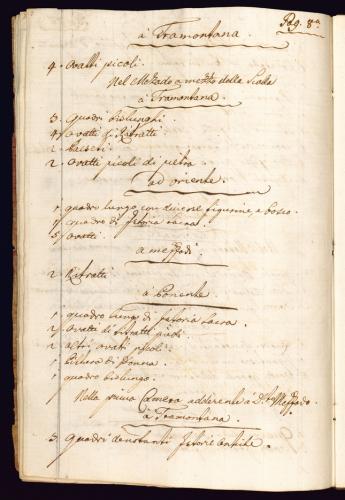 Pag. 8.a
à Tramontana.
4. ovatti picoli.
Nel Mezado a mezzo della Scalla
à Tramontana.
3. quadri bislunghi.
4. ovatti di Ritratti
2
2. ovatti picoli di pietra.
ad oriente.
1. quadro lungo con diverse figurine, e bosco.
1. quadro di Istoria Sacra.
5. ovatti.
a mezzodi
2 Ritratti
à Ponente.
1. quadro lungo di Istoria Sacra.
2. ovatti di ritratti picoli.
2 altri ovati picoli.
1. di Donna.
1. quadro bislungo.
Nella prima Camera adderente à D.to Mezzado.
à Tramontana.
3. quadri denottanti Istorie Antiche.